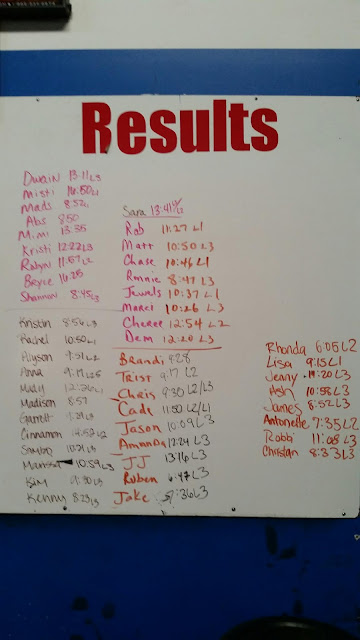 Results
Dwain 13:11 L3
Misti 16:50 L1
Mads 8:52 L1
Abs 8:50
Mimi 13:35
Kristi 12:22 L3
Robyn 11:57 L2
Bryce 16:25
Shannon 8:45 L3
Kristin 8:56 L3
Rachel 10:50 L1
Alyson 9:51 L2
Anna
Madison 8:57
Garrett
Cinnamon
Marissa 10:59 L3
Kim
Kenny 8:23 L3
Sara 13:41
Rob 11:27 L1
Matt 10:50 L3
Chase 10:46 L1
Ronnie 8:47 L3
Jewels 10:37 L1
Marci 10:26 L3
Cheree 12:54 L2
Dem 12:20 L3
Brandi 9:28
Trist 9:17 L2
Chris 9:30 L2/L3
Cade 11:50 L2/L1
Jason 10:09 L3
Amanda 12:24 L3
JJ 13:16 L3
Ruben 6:47 L3
Jake :36 L3
Rhonda 6:05 L2
Lisa 9:15 L1
Jenny 14:20 L3
Ash 10:58 L3
James 8:52 L3
Antonette 7:35 L2
Robbi 11:08 L3
Christan 8:33 L3